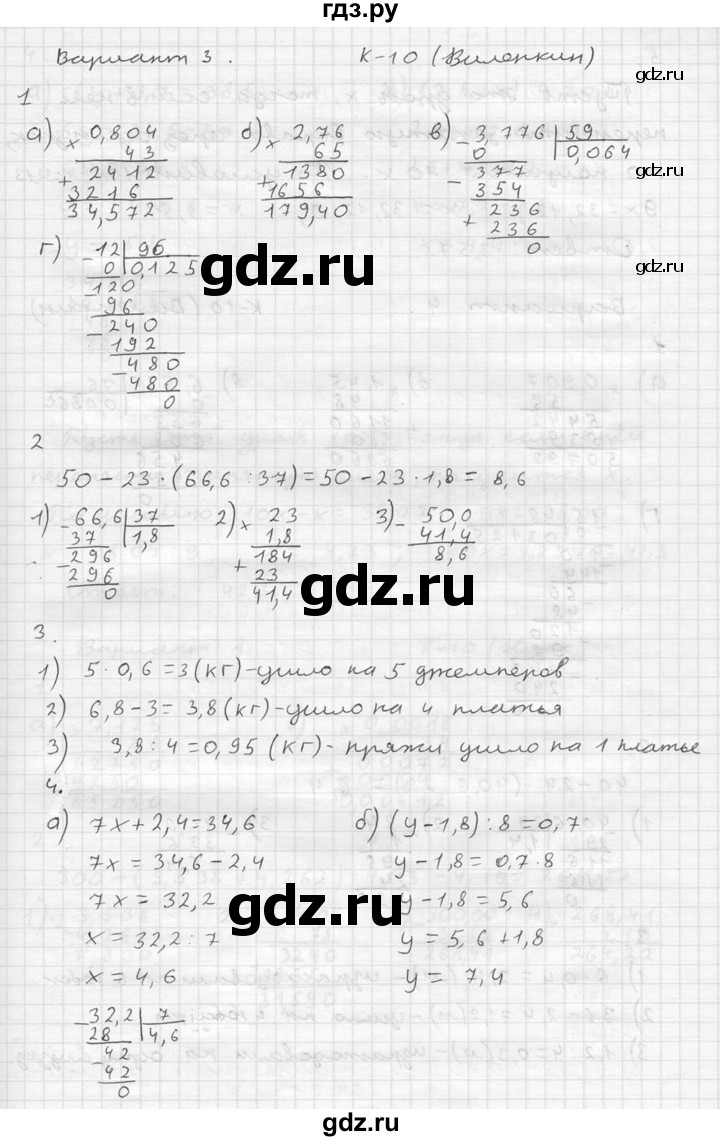 гдз.ру
Вариант 3. К-10 (Виленкин)
gdz.ru
1
а) × 0,804
43
+ 2412
3216
34,572
б) × 2,76
65
+ 1380
1656
179,40
в) - 3,776 | 59
0 | 0,064
- 377
354
+ 236
236
0
г) - 12 | 96
0 | 0,125
- 120
96
- 240
192
- 480
480
0
gdz.ru
gdz.ru
2
50 - 23 · (66,6 : 37) = 50 - 23 · 1,8 = 8,6
1) - 66,6 | 37
37 | 1,8
- 296
296
0
2) × 23
1,8
+ 184
23
41,4
3) - 50,0
41,4
8,6
gdz.ru
3.
1) 5 · 0,6 = 3 (кг) - ушло на 5 джемперов
2) 6,8 - 3 = 3,8 (кг) - ушло на 4 платья
3) 3,8 : 4 = 0,95 (кг) - пряжи ушло на 1 платье
4.
а) 7x + 2,4 = 34,6
7x = 34,6 - 2,4
7x = 32,2
x = 32,2 : 7
x = 4,6
- 32,2 | 7
28 | 4,6
- 42
42
0
б) (y - 1,8) : 8 = 0,7
y - 1,8 = 0,7 · 8
y - 1,8 = 5,6
y = 5,6 + 1,8
y = 7,4
gdz.ru
gdz.ru
gdz.ru